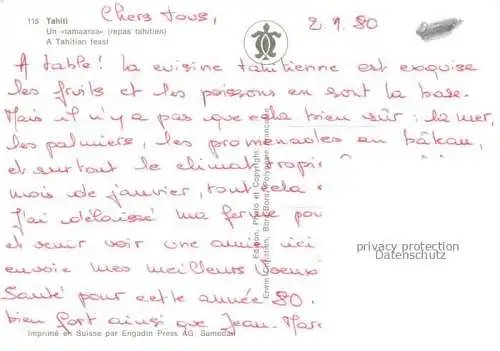 115 Tahiti
Un «tamaaraa» (repas tahitien)
A Tahitian feast
Chers tous,
2.1.80
A table! La cuisine tahitienne est exquise
les fruits et les poissons en sont la base.
Mais il n'y a pas que cela bien sûr : la mer,
les palmiers, les promenades en bâteau,
et surtout le climat tropi
mois de janvier, tout cela
J'ai délaissé ma ferme pou
et venir voir une amie ici
envoie mes meilleurs Voeux
Santé pour cette année 80.
bien fort ainsi que Jean-Mar
Imprimé en Suisse par Engadin Press AG, Samedan
Edition, Photo et Copyright
Erwin Christian, Bora-Bora, Polynésie Française
privacy protection
Datenschutz